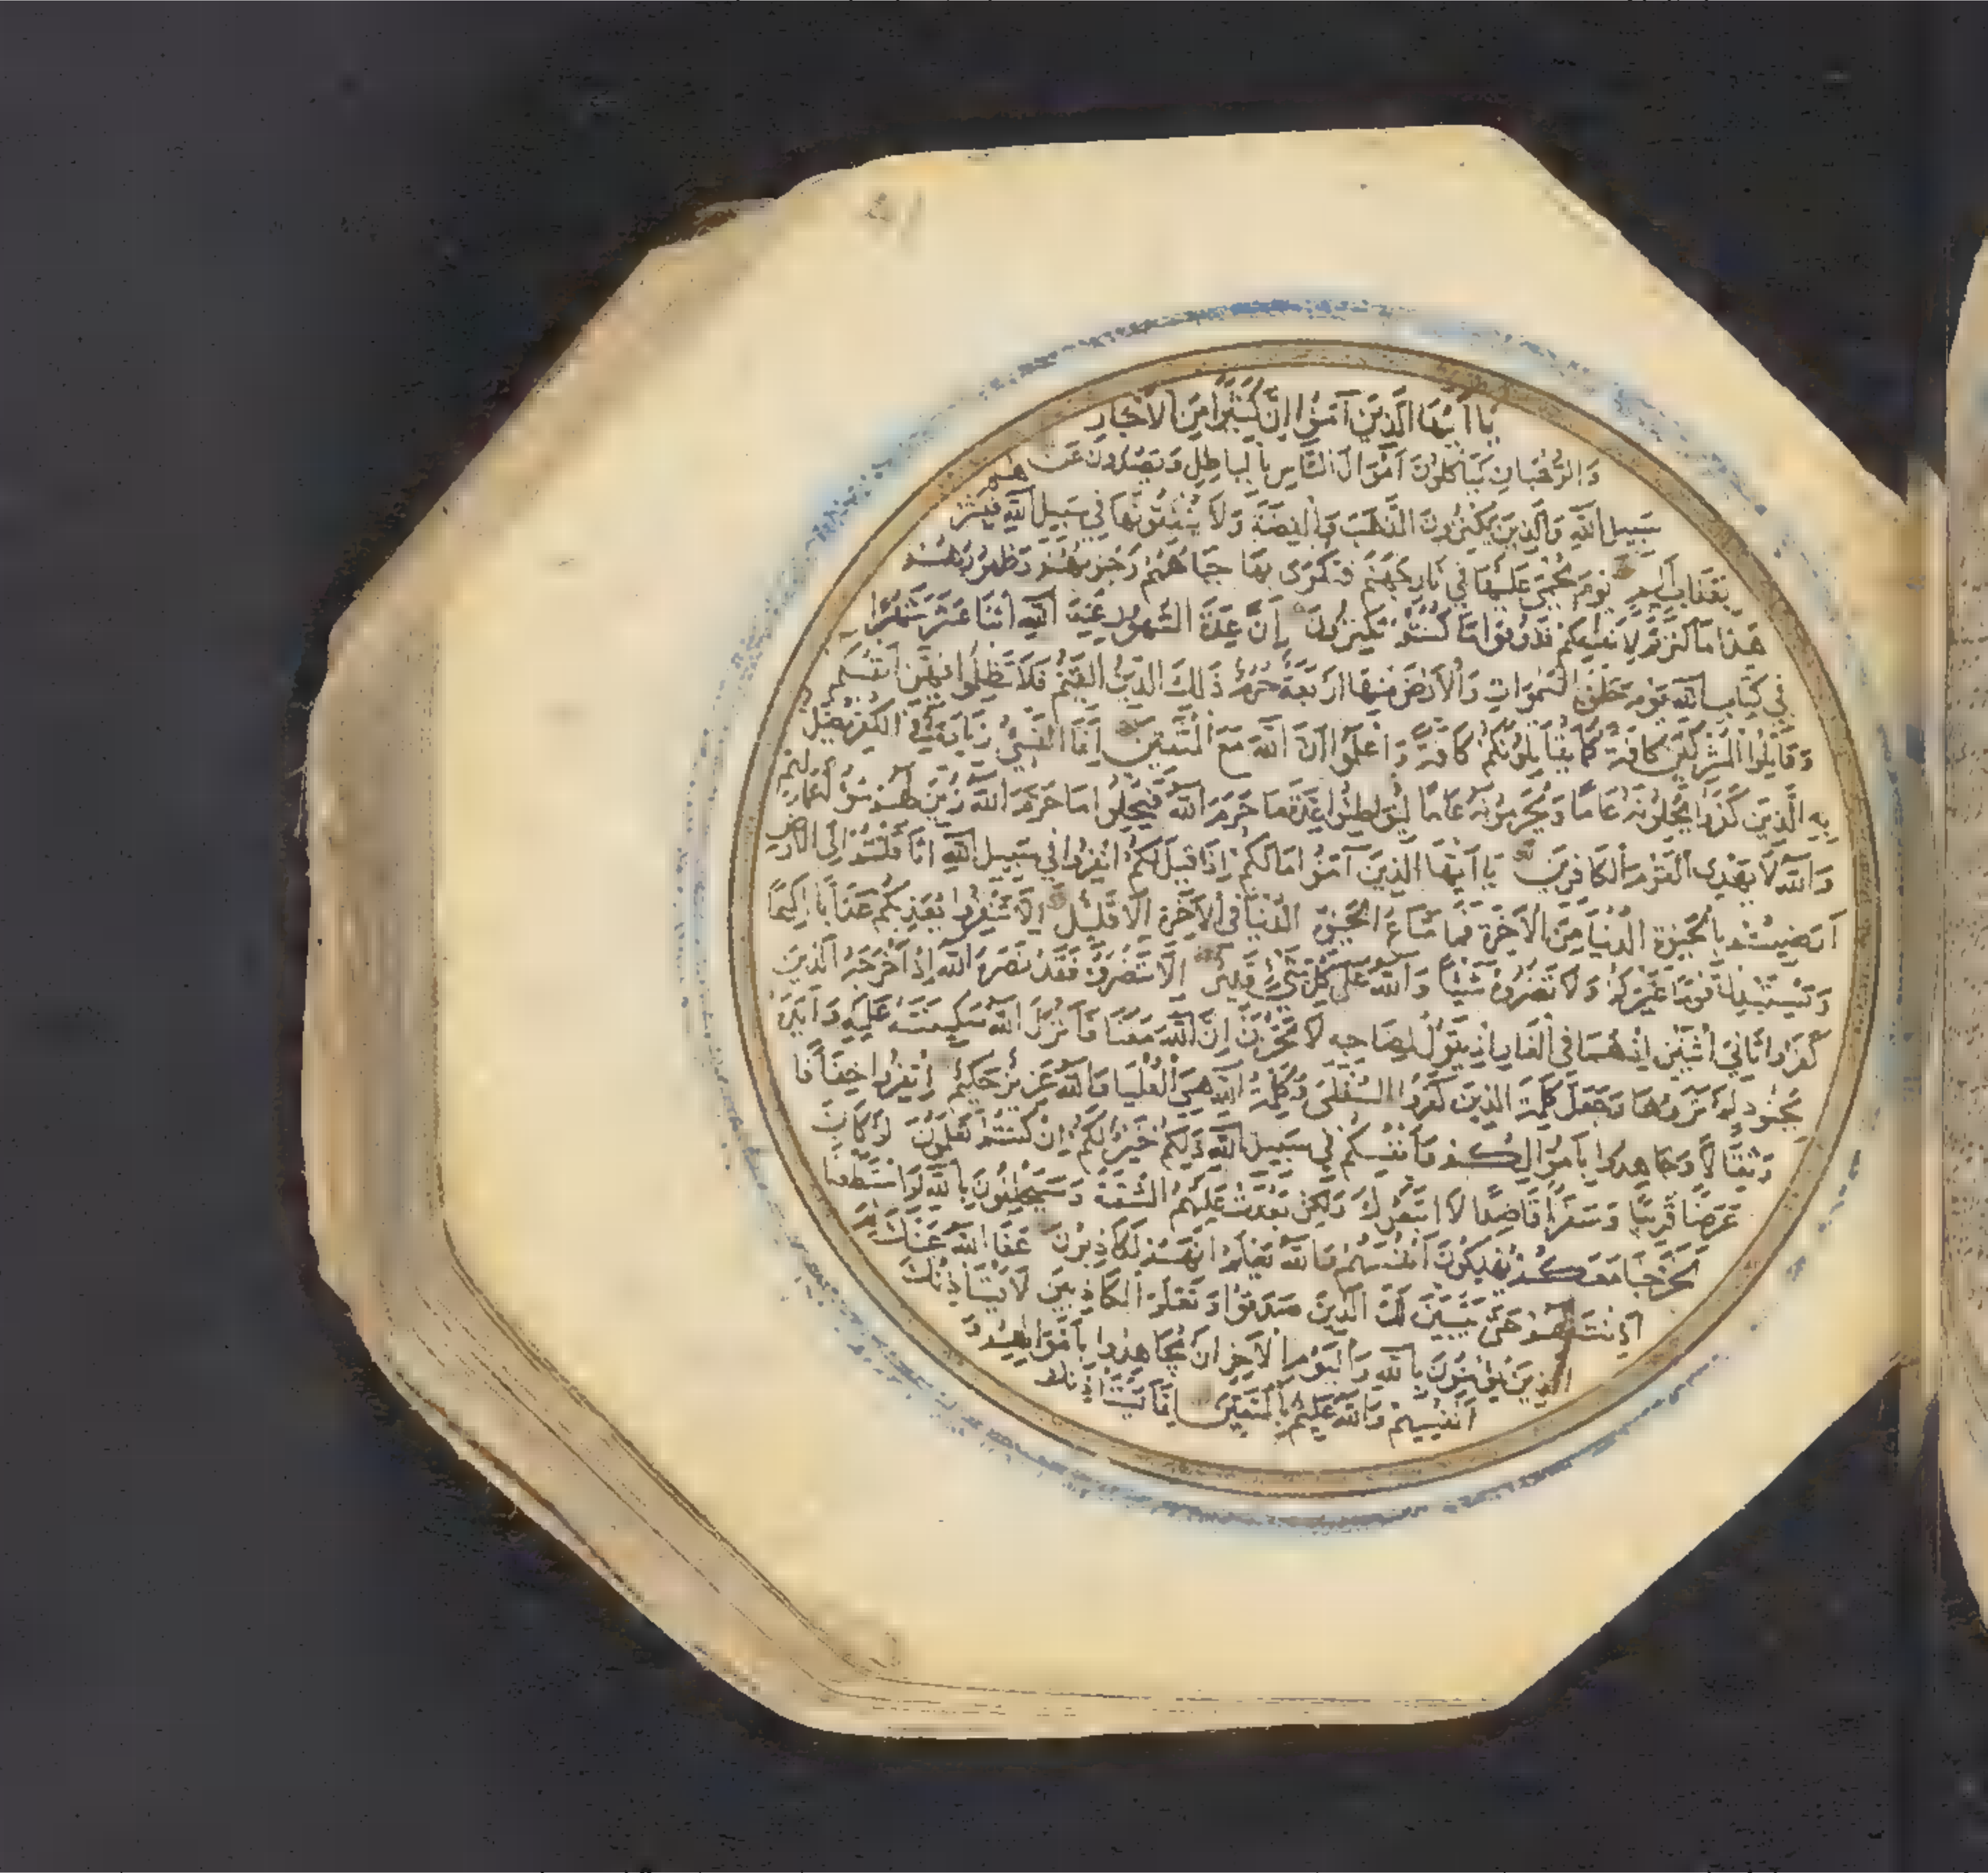 يَا أَيُّهَا الَّذِينَ آمَنُوا إِنَّ كَثِيرًا مِنَ الْأَحْبَارِ
وَالرُّهْبَانِ لَيَأْكُلُونَ أَمْوَالَ النَّاسِ بِالْبَاطِلِ وَيَصُدُّونَ عَنْ
سَبِيلِ اللَّهِ وَالَّذِينَ يَكْنِزُونَ الذَّهَبَ وَالْفِضَّةَ وَلَا يُنْفِقُونَهَا فِي سَبِيلِ اللَّهِ فَبَشِّرْهُمْ
بِعَذَابٍ أَلِيمٍ يَوْمَ يُحْمَى عَلَيْهَا فِي نَارِ جَهَنَّمَ فَتُكْوَى بِهَا جِبَاهُهُمْ وَجُنُوبُهُمْ وَظُهُورُهُمْ
هَذَا مَا كَنَزْتُمْ لِأَنْفُسِكُمْ فَذُوقُوا مَا كُنْتُمْ تَكْنِزُونَ إِنَّ عِدَّةَ الشُّهُورِ عِنْدَ اللَّهِ اثْنَا عَشَرَ شَهْرًا
فِي كِتَابِ اللَّهِ يَوْمَ خَلَقَ السَّمَوَاتِ وَالْأَرْضَ مِنْهَا أَرْبَعَةٌ حُرُمٌ ذَلِكَ الدِّينُ الْقَيِّمُ فَلَا تَظْلِمُوا فِيهِنَّ أَنْفُسَكُمْ
وَقَاتِلُوا الْمُشْرِكِينَ كَافَّةً كَمَا يُقَاتِلُونَكُمْ كَافَّةً وَاعْلَمُوا أَنَّ اللَّهَ مَعَ الْمُتَّقِينَ إِنَّمَا النَّسِيءُ زِيَادَةٌ فِي الْكُفْرِ يُضَلُّ
بِهِ الَّذِينَ كَفَرُوا يُحِلُّونَهُ عَامًا وَيُحَرِّمُونَهُ عَامًا لِيُوَاطِئُوا عِدَّةَ مَا حَرَّمَ اللَّهُ فَيُحِلُّوا مَا حَرَّمَ اللَّهُ زُيِّنَ لَهُمْ سُوءُ أَعْمَالِهِمْ
وَاللَّهُ لَا يَهْدِي الْقَوْمَ الْكَافِرِينَ يَا أَيُّهَا الَّذِينَ آمَنُوا مَا لَكُمْ إِذَا قِيلَ لَكُمُ انْفِرُوا فِي سَبِيلِ اللَّهِ اثَّاقَلْتُمْ إِلَى الْأَرْضِ
أَرَضِيتُمْ بِالْحَيَوةِ الدُّنْيَا مِنَ الْآخِرَةِ فَمَا مَتَاعُ الْحَيَوةِ الدُّنْيَا فِي الْآخِرَةِ إِلَّا قَلِيلٌ إِلَّا تَنْفِرُوا يُعَذِّبْكُمْ عَذَابًا أَلِيمًا
وَيَسْتَبْدِلْ قَوْمًا غَيْرَكُمْ وَلَا تَضُرُّوهُ شَيْئًا وَاللَّهُ عَلَى كُلِّ شَيْءٍ قَدِيرٌ إِلَّا تَنْصُرُوهُ فَقَدْ نَصَرَهُ اللَّهُ إِذْ أَخْرَجَهُ الَّذِينَ
كَفَرُوا ثَانِيَ اثْنَيْنِ إِذْ هُمَا فِي الْغَارِ إِذْ يَقُولُ لِصَاحِبِهِ لَا تَحْزَنْ إِنَّ اللَّهَ مَعَنَا فَأَنْزَلَ اللَّهُ سَكِينَتَهُ عَلَيْهِ وَأَيَّدَهُ
بِجُنُودٍ لَمْ تَرَوْهَا وَجَعَلَ كَلِمَةَ الَّذِينَ كَفَرُوا السُّفْلَى وَكَلِمَةُ اللَّهِ هِيَ الْعُلْيَا وَاللَّهُ عَزِيزٌ حَكِيمٌ انْفِرُوا خِفَافًا
وَثِقَالًا وَجَاهِدُوا بِأَمْوَالِكُمْ وَأَنْفُسِكُمْ فِي سَبِيلِ اللَّهِ ذَلِكُمْ خَيْرٌ لَكُمْ إِنْ كُنْتُمْ تَعْلَمُونَ لَوْ كَانَ
عَرَضًا قَرِيبًا وَسَفَرًا قَاصِدًا لَاتَّبَعُوكَ وَلَكِنْ بَعُدَتْ عَلَيْهِمُ الشُّقَّةُ وَسَيَحْلِفُونَ بِاللَّهِ لَوِ اسْتَطَعْنَا
لَخَرَجْنَا مَعَكُمْ يُهْلِكُونَ أَنْفُسَهُمْ وَاللَّهُ يَعْلَمُ إِنَّهُمْ لَكَاذِبُونَ عَفَا اللَّهُ عَنْكَ لِمَ
أَذِنْتَ لَهُمْ حَتَّى يَتَبَيَّنَ لَكَ الَّذِينَ صَدَقُوا وَتَعْلَمَ الْكَاذِبِينَ لَا يَسْتَأْذِنُكَ
الَّذِينَ يُؤْمِنُونَ بِاللَّهِ وَالْيَوْمِ الْآخِرِ أَنْ يُجَاهِدُوا بِأَمْوَالِهِمْ وَ
أَنْفُسِهِمْ وَاللَّهُ عَلِيمٌ بِالْمُتَّقِينَ إِنَّمَا يَسْتَأْذِنُكَ